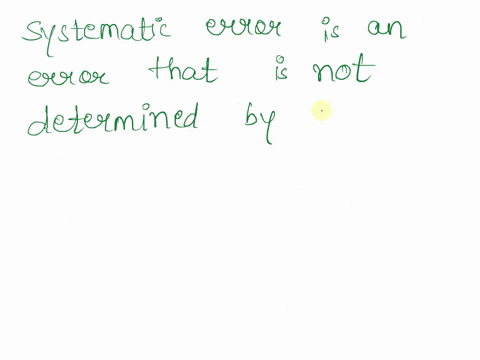 systematic error is an
error that is not
determined by